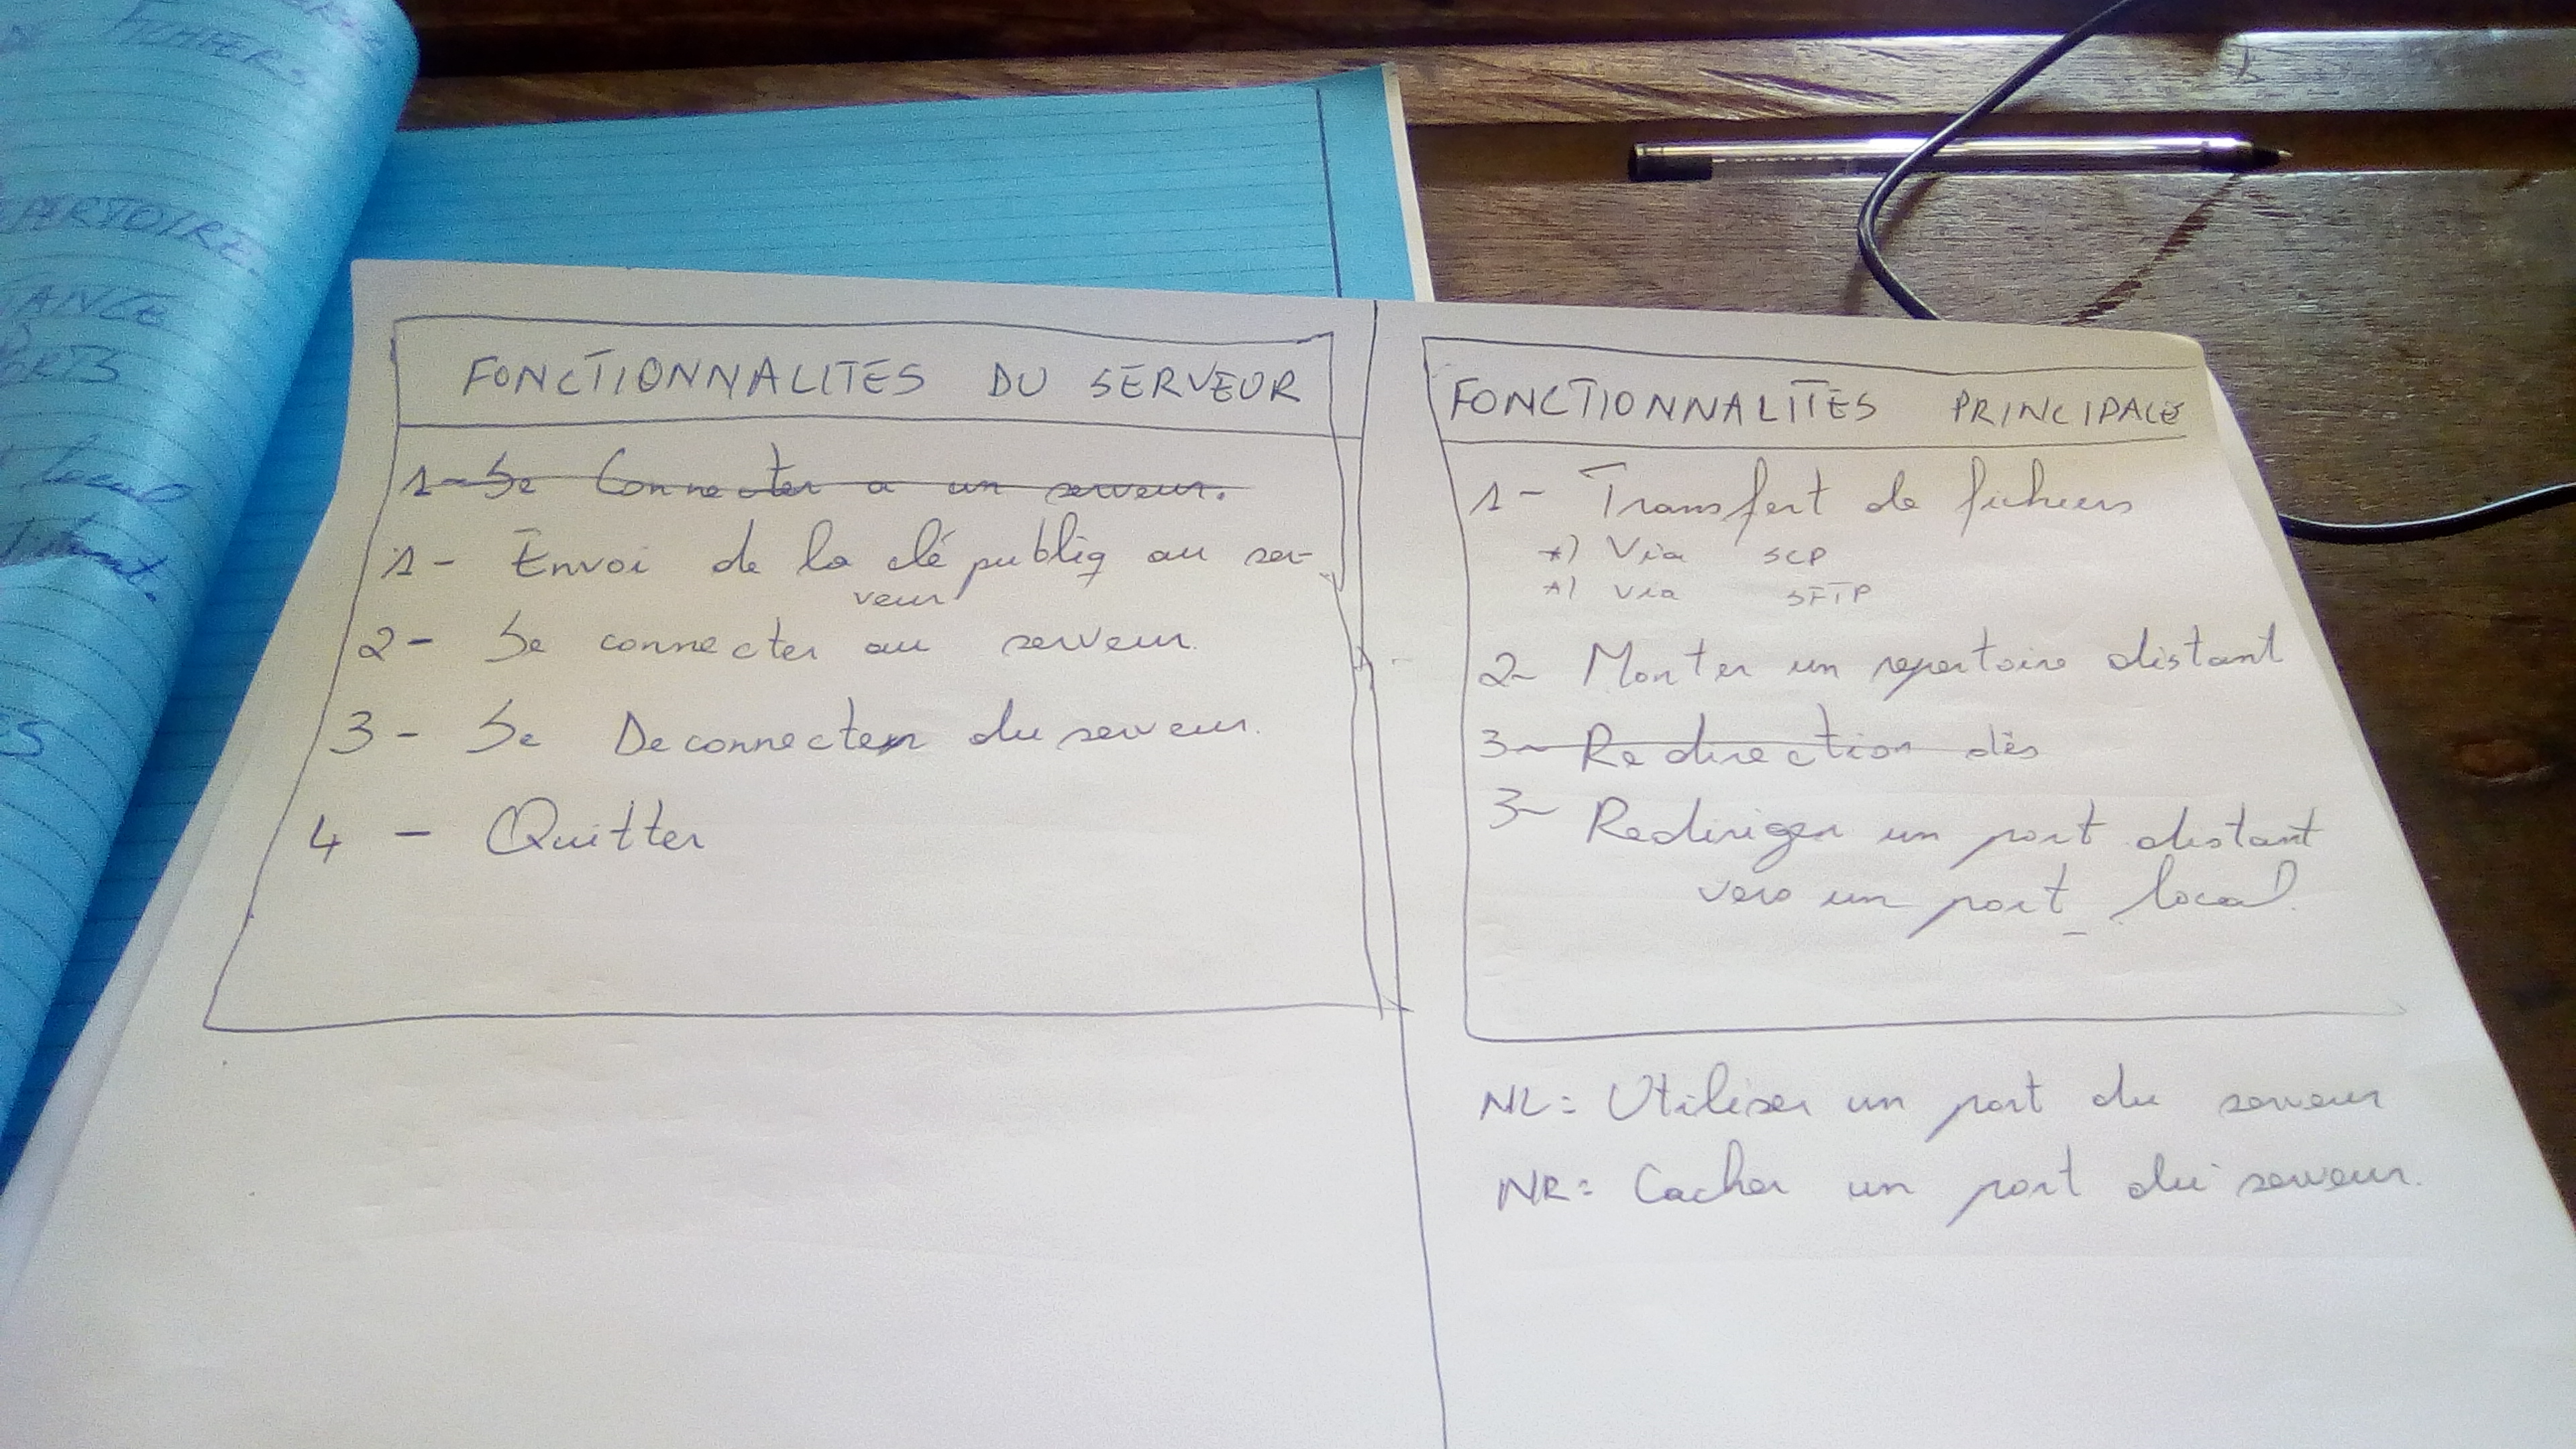 FICHIERS
REPERTOIRE.
TANCE
PORTS
local
distant.
ES
FONCTIONNALITES DU SERVEUR
1- Se Connecter a un serveur.
1- Envoi de la clé publiq au ser-
veur
2- Se connecter au serveur.
3- Se Deconnecter du serveur.
4 - Quitter
FONCTIONNALITES PRINCIPALE
1- Transfert de fichiers
*) Via SCP
*) Via SFTP
2- Monter un repertoire distant
3- Redirection dès
3- Rediriger un port distant
vers un port local.
NL = Utiliser un port du serveur
NR = Cacher un port du serveur.